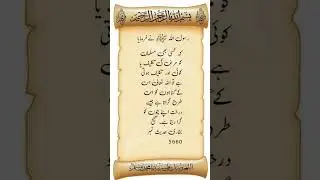 بسم الله الرحمن الرحيم
رسول اللہ ﷺ نے فرمایا
کہ کسی بھی مسلمان
کو مرض کی تکلیف یا
کوئی اور تکلیف ہوتی
ہے تو اللہ تعالیٰ اس
کے گناہوں کو اس
طرح گراتا ہے جیسے
درخت اپنے پتوں کو
گراتا ہے۔ صحیح
بخاری حدیث نمبر
5660